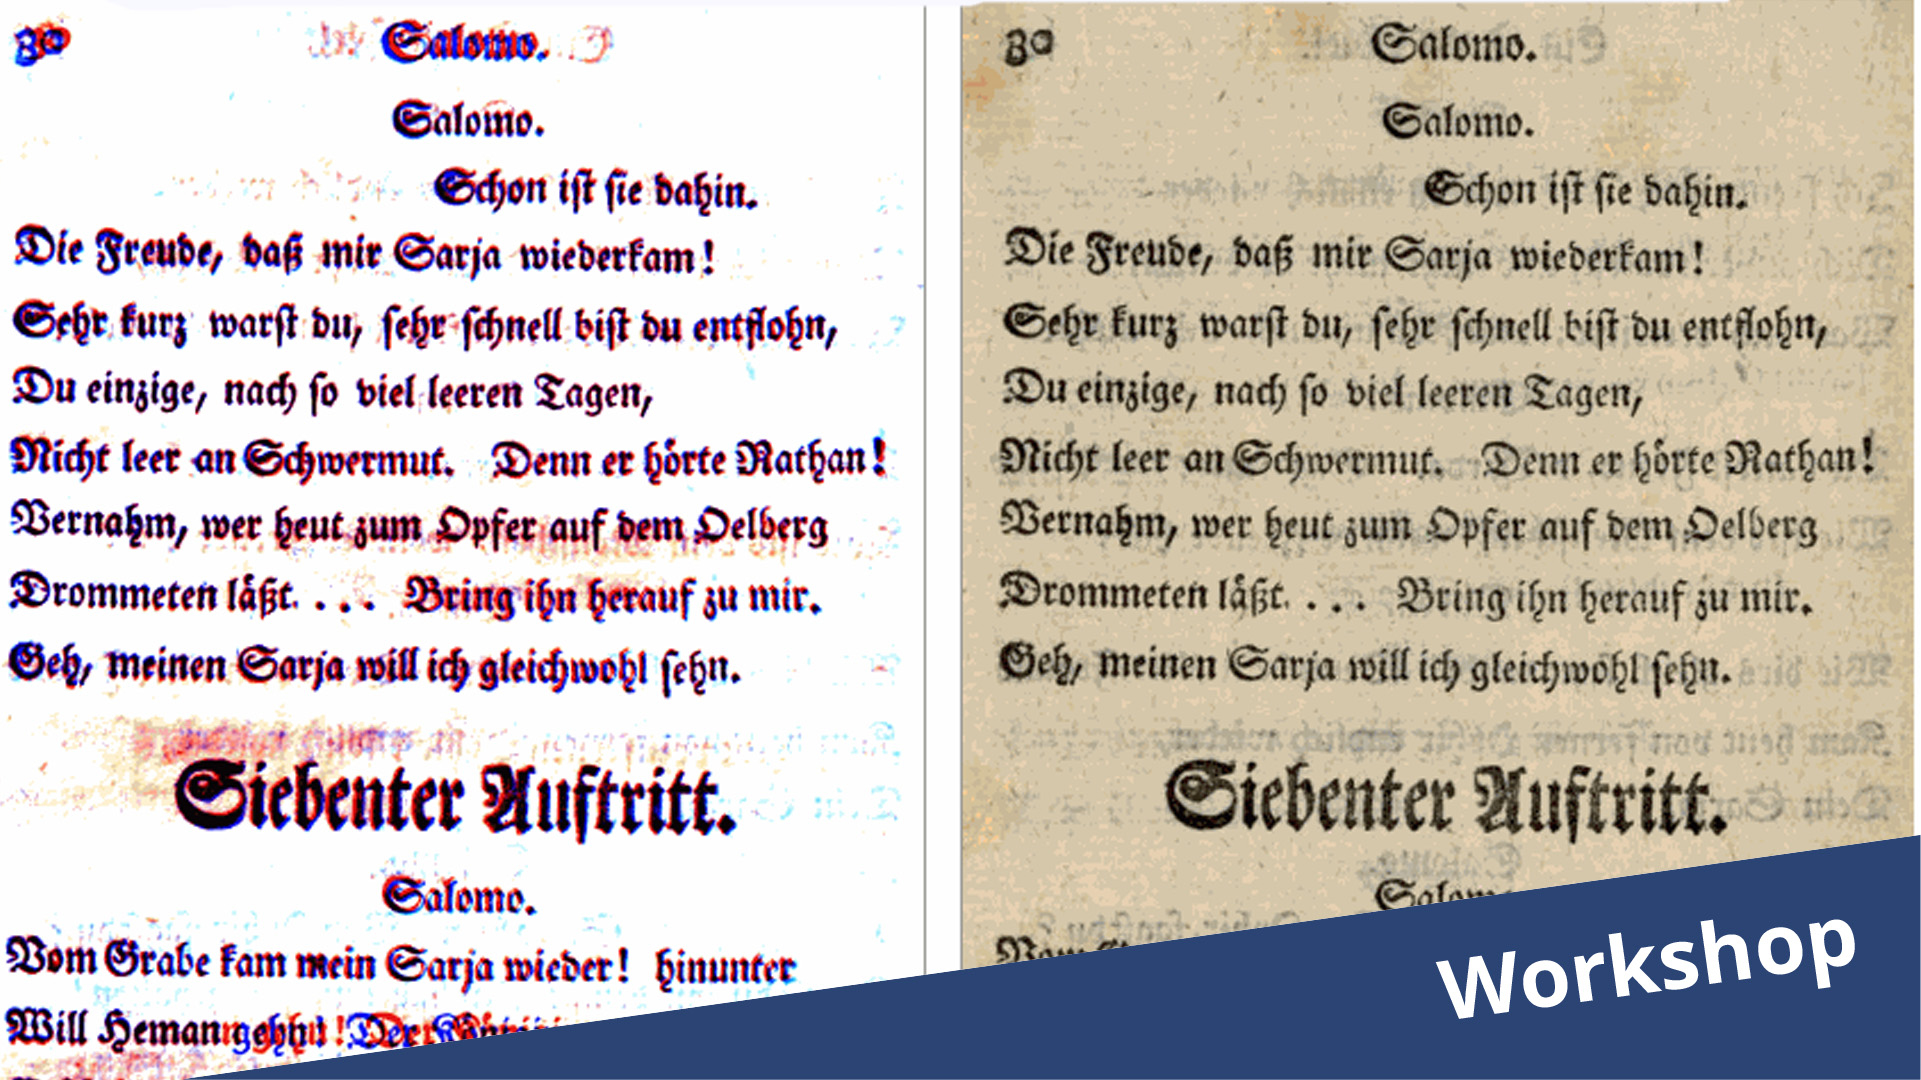 30 Salomo.
Salomo.
Schon ist sie dahin.
Die Freude, daß mir Sarja wiederkam!
Sehr kurz warst du, sehr schnell bist du entflohn,
Du einzige, nach so viel leeren Tagen,
Nicht leer an Schwermut. Denn er hörte Nathan!
Vernahm, wer heut zum Opfer auf dem Oelberg
Drommeten läßt. . . . Bring ihn herauf zu mir.
Geh, meinen Sarja will ich gleichwohl sehn.
Siebenter Auftritt.
Salomo.
Vom Grabe kam mein Sarja wieder! hinunter
Will Heman gehn! Der
30 Salomo.
Salomo.
Schon ist sie dahin.
Die Freude, daß mir Sarja wiederkam!
Sehr kurz warst du, sehr schnell bist du entflohn,
Du einzige, nach so viel leeren Tagen,
Nicht leer an Schwermut. Denn er hörte Nathan!
Vernahm, wer heut zum Opfer auf dem Oelberg
Drommeten läßt. . . . Bring ihn herauf zu mir.
Geh, meinen Sarja will ich gleichwohl sehn.
Siebenter Auftritt.
Salomo
Vom
Workshop